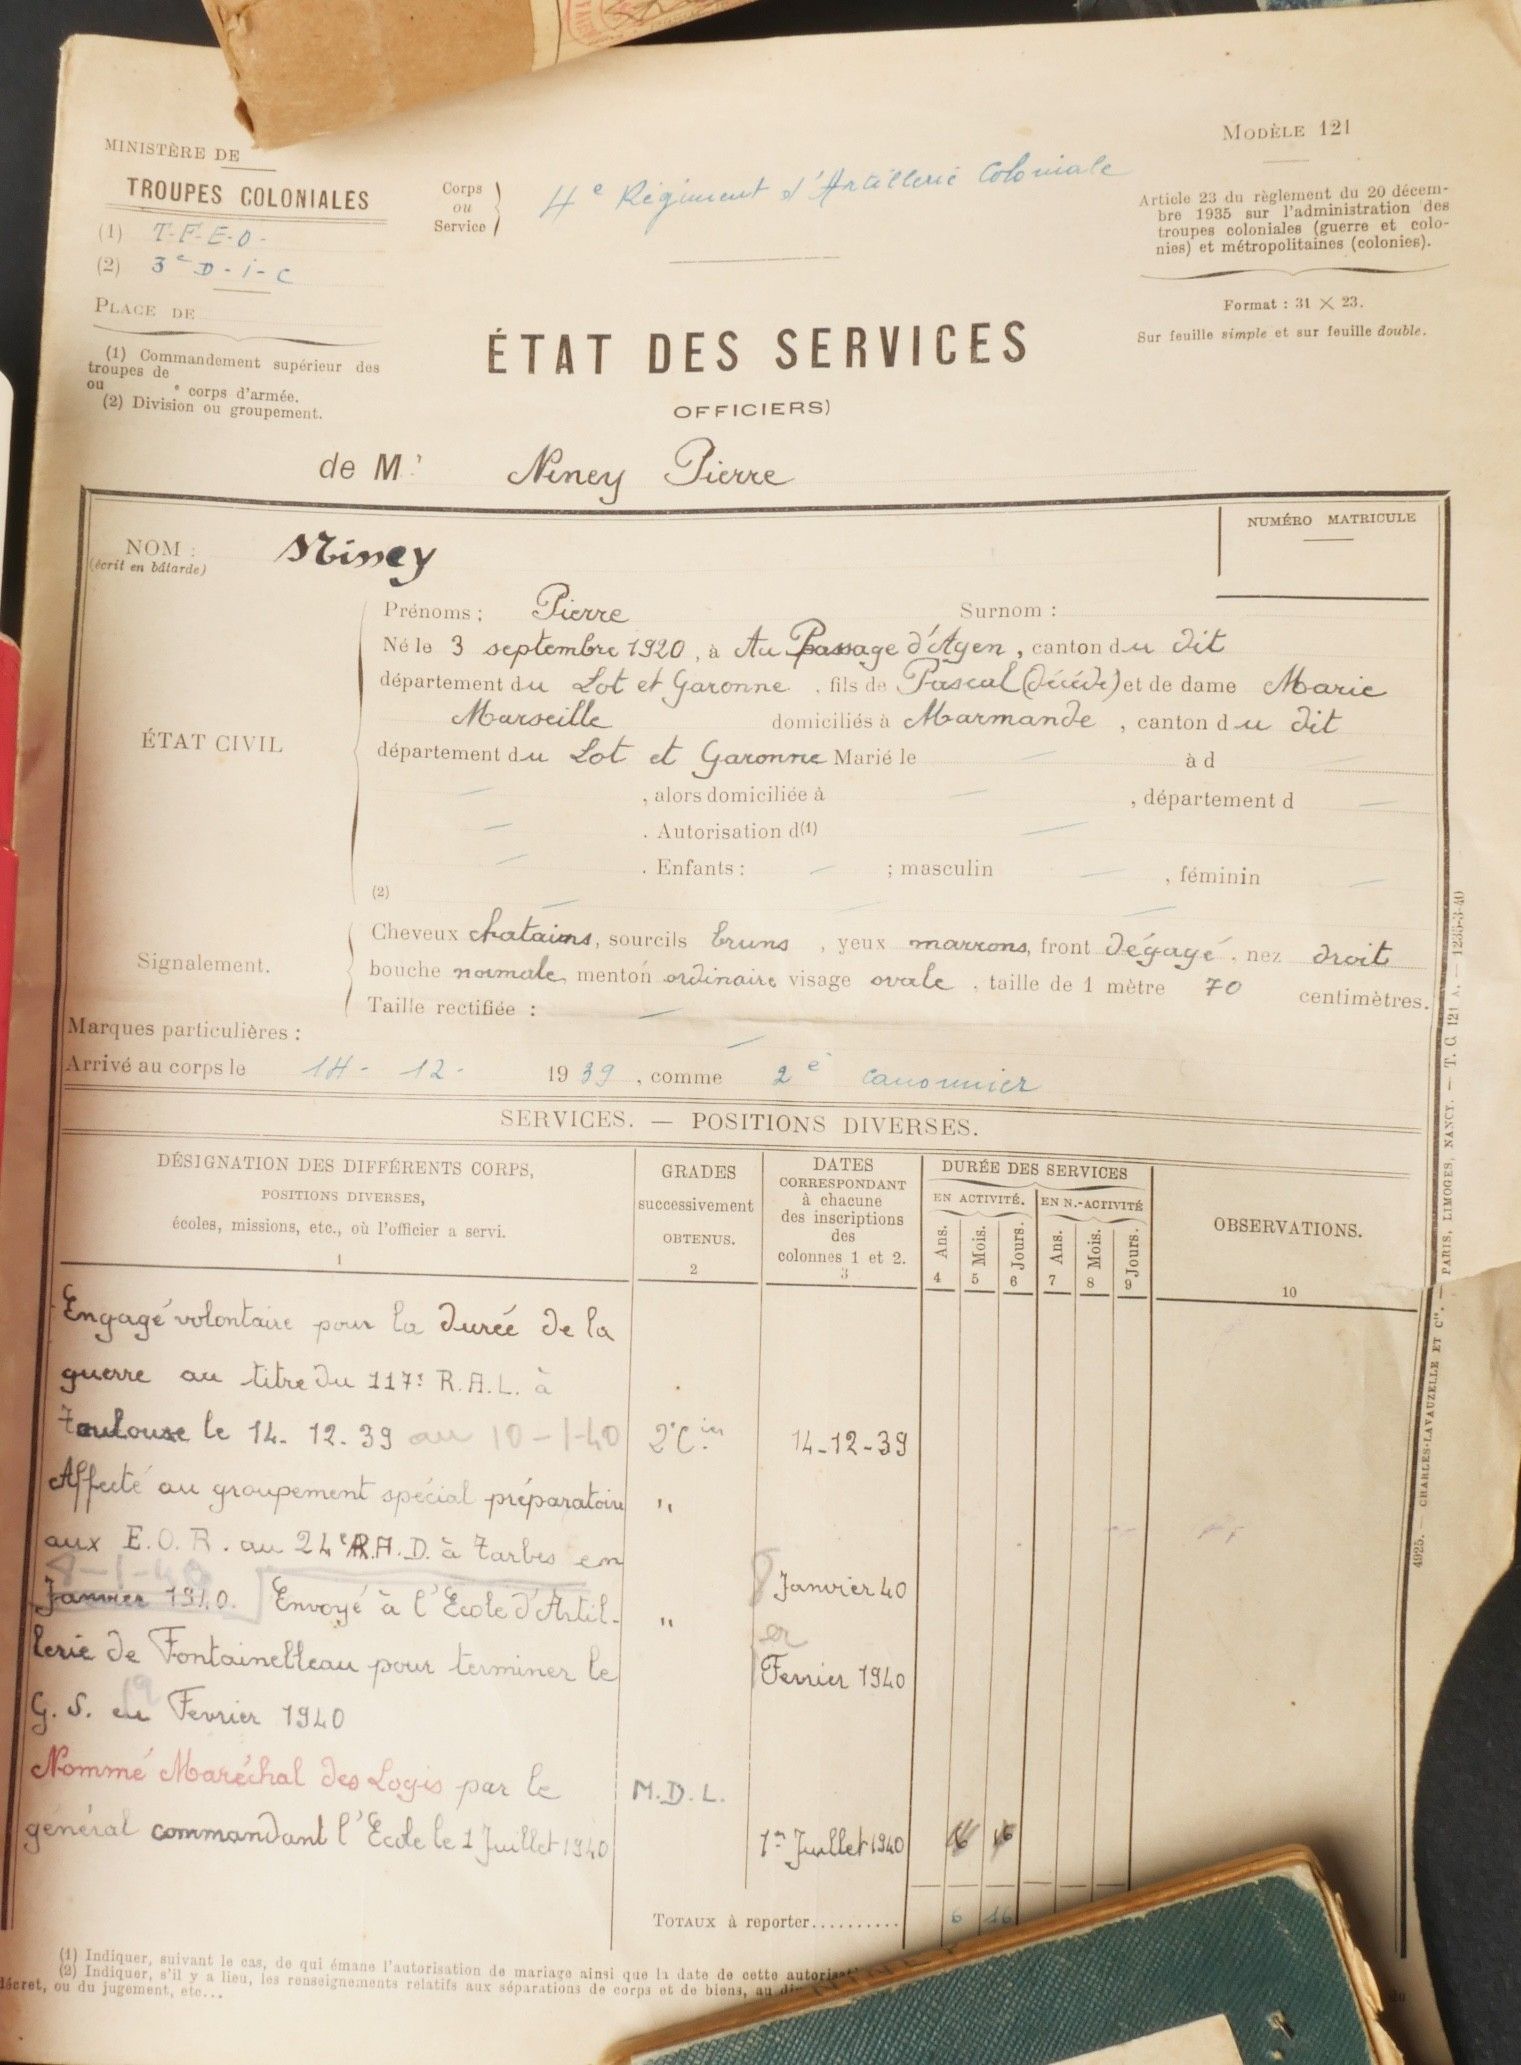 MINISTÈRE DE
TROUPES COLONIALES
(1) T-F-E-O-
(2) 3e D-i-C
PLACE DE
(1) Commandement supérieur des
troupes de
ou ° corps d'armée.
(2) Division ou groupement.
Corps
ou
Service
4e Régiment d'Artillerie Coloniale
MODÈLE 121
Article 23 du règlement du 20 décem-
bre 1935 sur l'administration des
troupes coloniales (guerre et colo-
nies) et métropolitaines (colonies).
Format : 31 × 23.
Sur feuille simple et sur feuille double.
ÉTAT DES SERVICES
OFFICIERS)
de M.r Niney Pierre
NUMÉRO MATRICULE
NOM : Niney
(écrit en bâtarde)
ÉTAT CIVIL
Prénoms : Pierre Surnom :
Né le 3 septembre 1920, à Au Passage d'Agen, canton du dit
département du Lot et Garonne, fils de Pascal (décédé) et de dame Marie
Marseille domiciliés à Marmande, canton du dit
département du Lot et Garonne Marié le — à d —
— , alors domiciliée à — , département d —
— . Autorisation d(1) —
— . Enfants : — ; masculin — , féminin —
(2) — — —
Signalement.
Cheveux chatains, sourcils bruns, yeux marrons, front dégagé, nez droit
bouche normale, menton ordinaire visage ovale, taille de 1 mètre 70 centimètres.
Taille rectifiée : —
Marques particulières : —
Arrivé au corps le 14 - 12 - 1939, comme 2e canonnier
SERVICES. — POSITIONS DIVERSES.
DÉSIGNATION DES DIFFÉRENTS CORPS,
POSITIONS DIVERSES,
écoles, missions, etc., où l'officier a servi.
1
GRADES
successivement
OBTENUS.
2
DATES
CORRESPONDANT
à chacune
des inscriptions
des
colonnes 1 et 2.
3
DURÉE DES SERVICES
EN ACTIVITÉ. EN N.-ACTIVITÉ
Ans. Mois. Jours. Ans. Mois. Jours.
4 5 6 7 8 9
OBSERVATIONS.
10
Engagé volontaire pour la durée de la
guerre au titre du 117e R.A.L. à
Toulouse le 14. 12. 39 au 10-1-40 2e Cier 14-12-39
Affecté au groupement spécial préparatoire "
aux E.O.R. au 24e R.A.D. à Tarbes en
8-1-40
Janvier 1940. Envoyé à l'Ecole d'Artil- " 8 Janvier 40
lerie de Fontainebleau pour terminer le Fevrier 1940
G. S. en Fevrier 1940
Nommé Maréchal des Logis par le M.D.L.
général commandant l'Ecole le 1 Juillet 1940 1er Juillet 1940 16
TOTAUX à reporter.......... 6 16
(1) Indiquer, suivant le cas, de qui émane l'autorisation de mariage ainsi que la date de cette
(2) Indiquer, s'il y a lieu, les renseignements relatifs aux séparations de corps et de biens, au
décret, ou du jugement, etc...
4925. — CHARLES-LAVAUZELLE ET Cie. — PARIS, LIMOGES, NANCY. — T. C. 121 A. — 1235-3-40